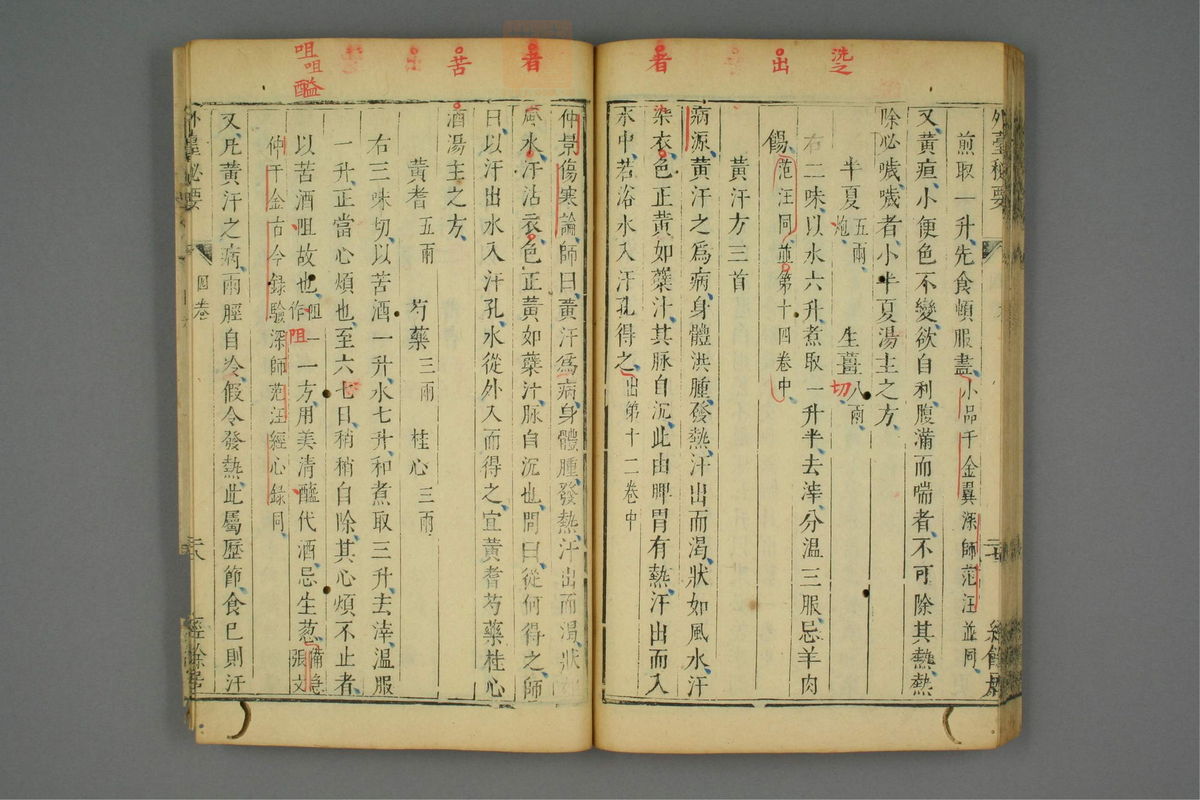 洗之
出
者
外臺秘要
經餘居
煎取一升先食頓服盡小品千金翼深師范汪並同
又黃疸小便色不變欲自利腹滿而喘者不可除其熱熱
除必噦噦者小半夏湯主之方
半夏五兩炮 生薑八兩切
右二味以水六升煮取一升半去滓分溫三服忌羊肉
餳范汪同並第十四卷中
黃汗方三首
病源黃汗之為病身體洪腫發熱汗出而渴狀如風水汗
染衣色正黃如蘗汁其脉自沉此由脾胃有熱汗出而入
水中若浴水入汗孔得之出第十二卷中
者
苦
出
咀咀
醯
仲景傷寒論師曰黃汗爲病身體腫發熱汗出而渴狀如
風水汗沾衣色正黃如蘗汁脉自沉也問曰從何得之師
曰以汗出水入汗孔水從外入而得之宜黃耆芍藥桂心
酒湯主之方
黃耆五兩 芍藥三兩 桂心三兩
右三味切以苦酒一升水七升和煮取三升去滓溫服
一升正當心煩也至六七日稍稍自除其心煩不止者
以苦酒咀故也咀一作咀一方用美清醯代酒忌生葱備急張文
仲千金古今録驗深師范汪經心録同
又凡黃汗之病兩脛自冷假令發熱此屬歷節食已則汗
外臺秘要
四卷
經餘居